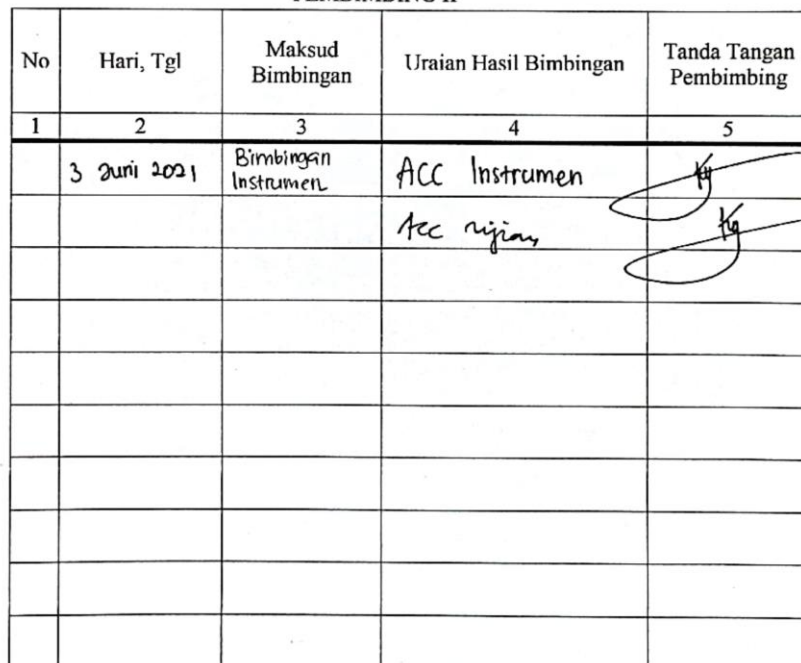 No
Hari, Tgl
Maksud
Bimbingan
Uraian Hasil Bimbingan
Tanda Tangan
Pembimbing
1
2
3
4
5
3 Juni 2021
Bimbingan
Instrumen
ACC Instrumen
Acc